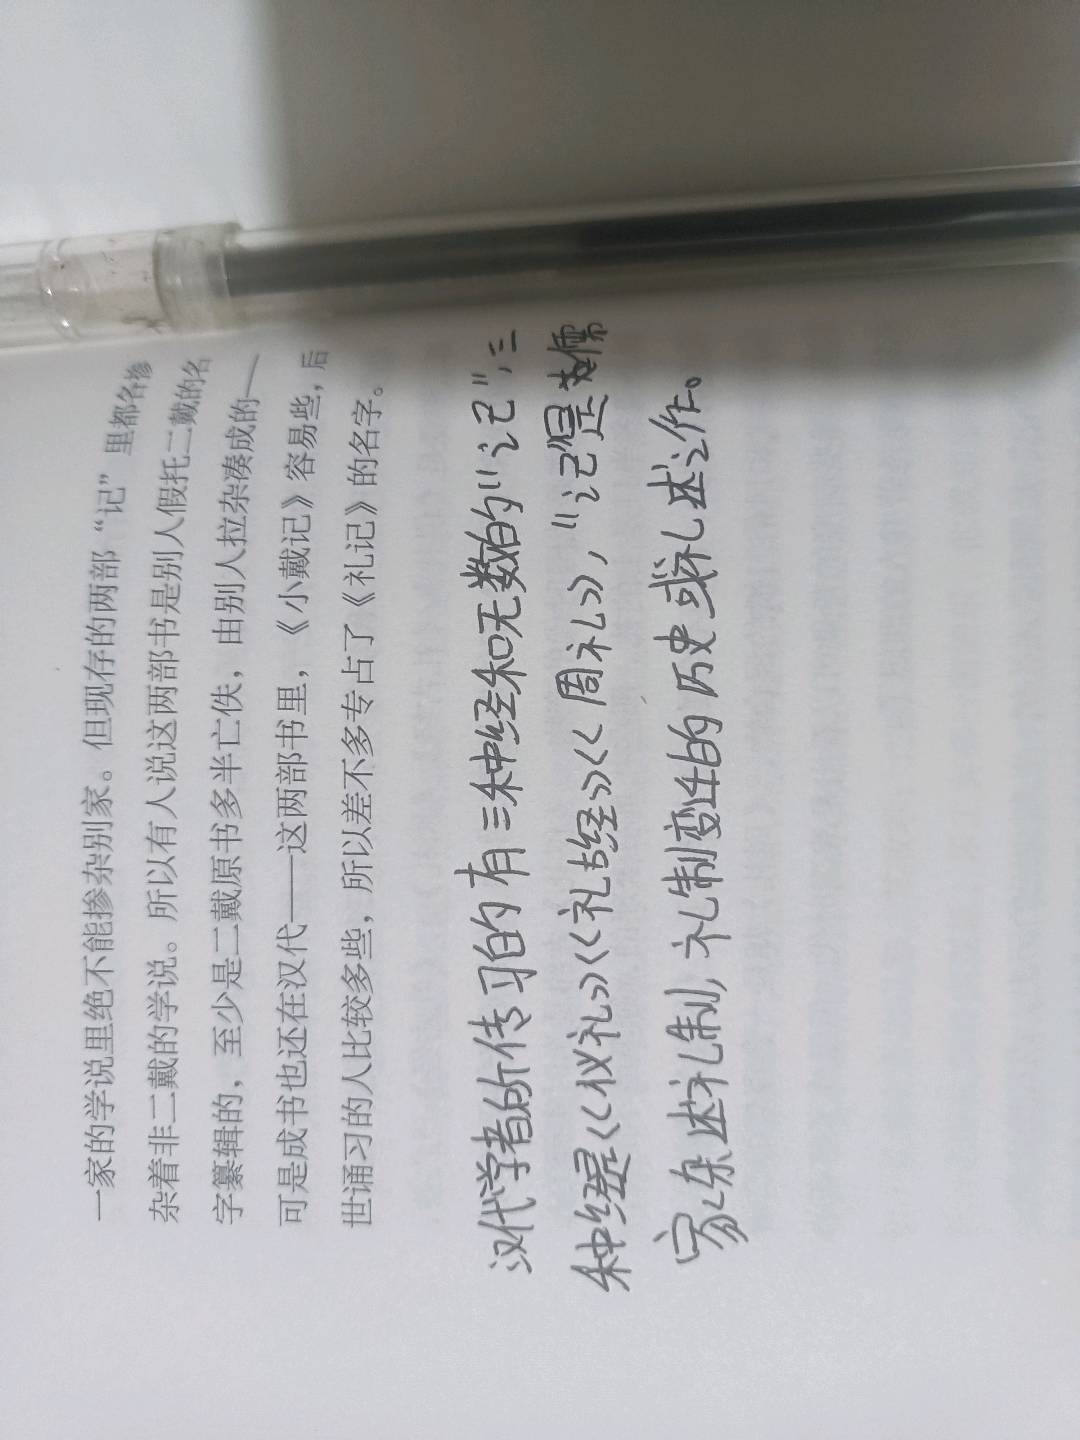 一家的学说里绝不能掺杂别家。但现存的两部“记”里都各掺
杂着非二戴的学说。所以有人说这两部书是别人假托二戴的名
字纂辑的，至少是二戴原书多半亡佚，由别人拉杂凑成的——
可是成书也还在汉代——这两部书里，《小戴记》容易些，后
世诵习的人比较多些，所以差不多专占了《礼记》的名字。
汉代学者所传习的有三种经和无数的“记”，三
种经是《仪礼》《礼古经》《周礼》，“记”是儒
家杂述礼制，礼制变迁的历史或礼述之作。